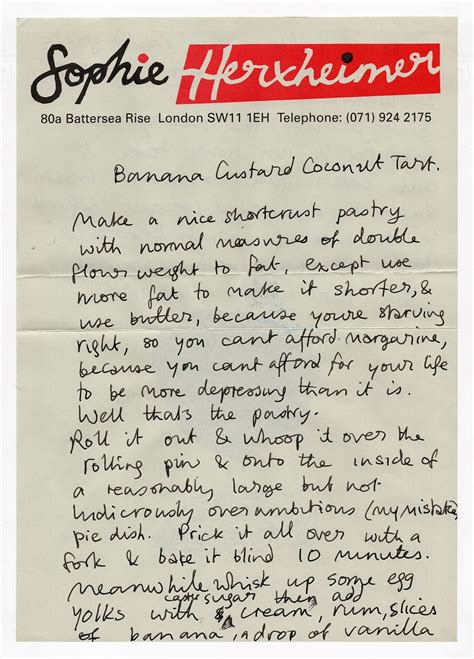 Sophie Herxheimer
80a Battersea Rise London SW11 1EH Telephone: (071) 924 2175
Banana Custard Coconut Tart.
Make a nice shortcrust pastry
with normal measures of double
flour weight to fat, except use
more fat to make it shorter, &
use butter, because youre starving
right, so you cant afford margarine,
because you cant afford for your life
to be more depressing than it is.
Well thats the pastry.
Roll it out & whoop it over the
rolling pin & onto the inside of
a reasonably large but not
ludicrously overambitious (my mistake)
pie dish. Prick it all over with a
fork & bake it blind 10 minutes.
Meanwhile whisk up some egg
yolks with caster sugar then add cream, rum, slices
of banana, a drop of vanilla